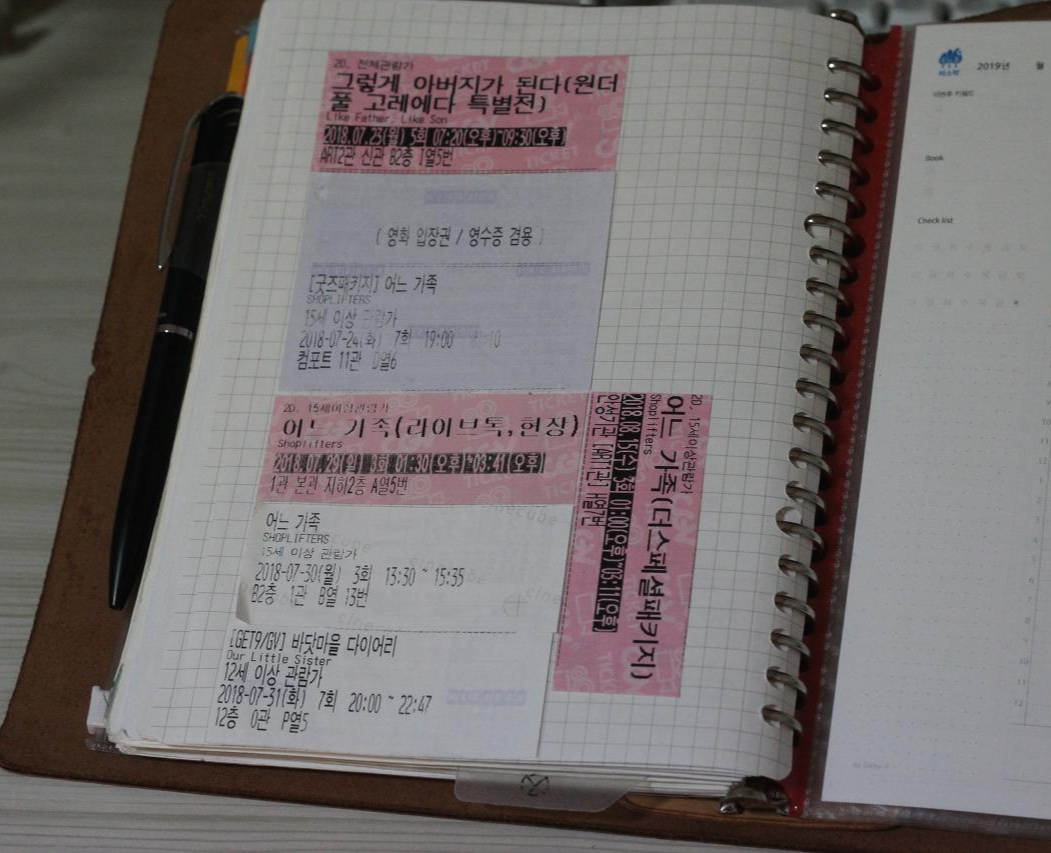 2D, 전체관람가
그렇게 아버지가 된다(원더
풀 고레에다 특별전)
Like Father, Like Son
2018.07.23(월) 5회 07:20(오후)~09:30(오후)
ART2관 신관 B2층 I열5번
( 영화 입장권 / 영수증 겸용 )
[굿즈패키지] 어느 가족
SHOPLIFTERS
15세 이상 관람가
2018-07-24(화) 7회 19:00
컴포트 11관 D열6
2D, 15세이상관람가
어느 가족(라이브톡,현장)
Shoplifters
2018.07.29(일) 3회 01:30(오후)~03:41(오후)
1관 본관 지하2층 A열5번
어느 가족
SHOPLIFTERS
15세 이상 관람가
2018-07-30(월) 3회 13:30 ~ 15:35
B2층 1관 B열 13번
[GET9/GV] 바닷마을 다이어리
Our Little Sister
12세 이상 관람가
2018-07-31(화) 7회 20:00 ~ 22:47
12층 0관 P열5
2D, 15세이상관람가
어느 가족(더스페셜패키지)
Shoplifters
2018.08.15(수) 3회 01:00(오후)~03:11(오후)
(ART1관) H열7번
2019년 월
이번주 키워드
Book
Check list